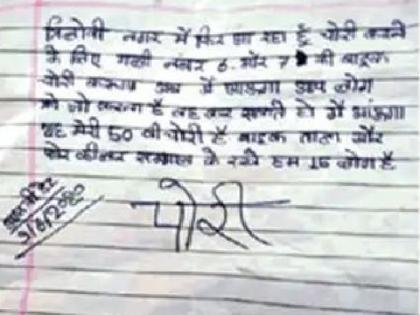 त्रिलोनी नगर में फिर आ रहा हूँ चोरी करने
के लिए गली नंबर 6 और 7 की बाइक
चोरी करूंगा अब मैं आऊंगा आप लोग
को जो करना है वह कर सकते हो मैं आऊंगा
यह मेरी 50 वी चोरी है बाइक ताला और
के रखे हम 15 लोग है
चोरी